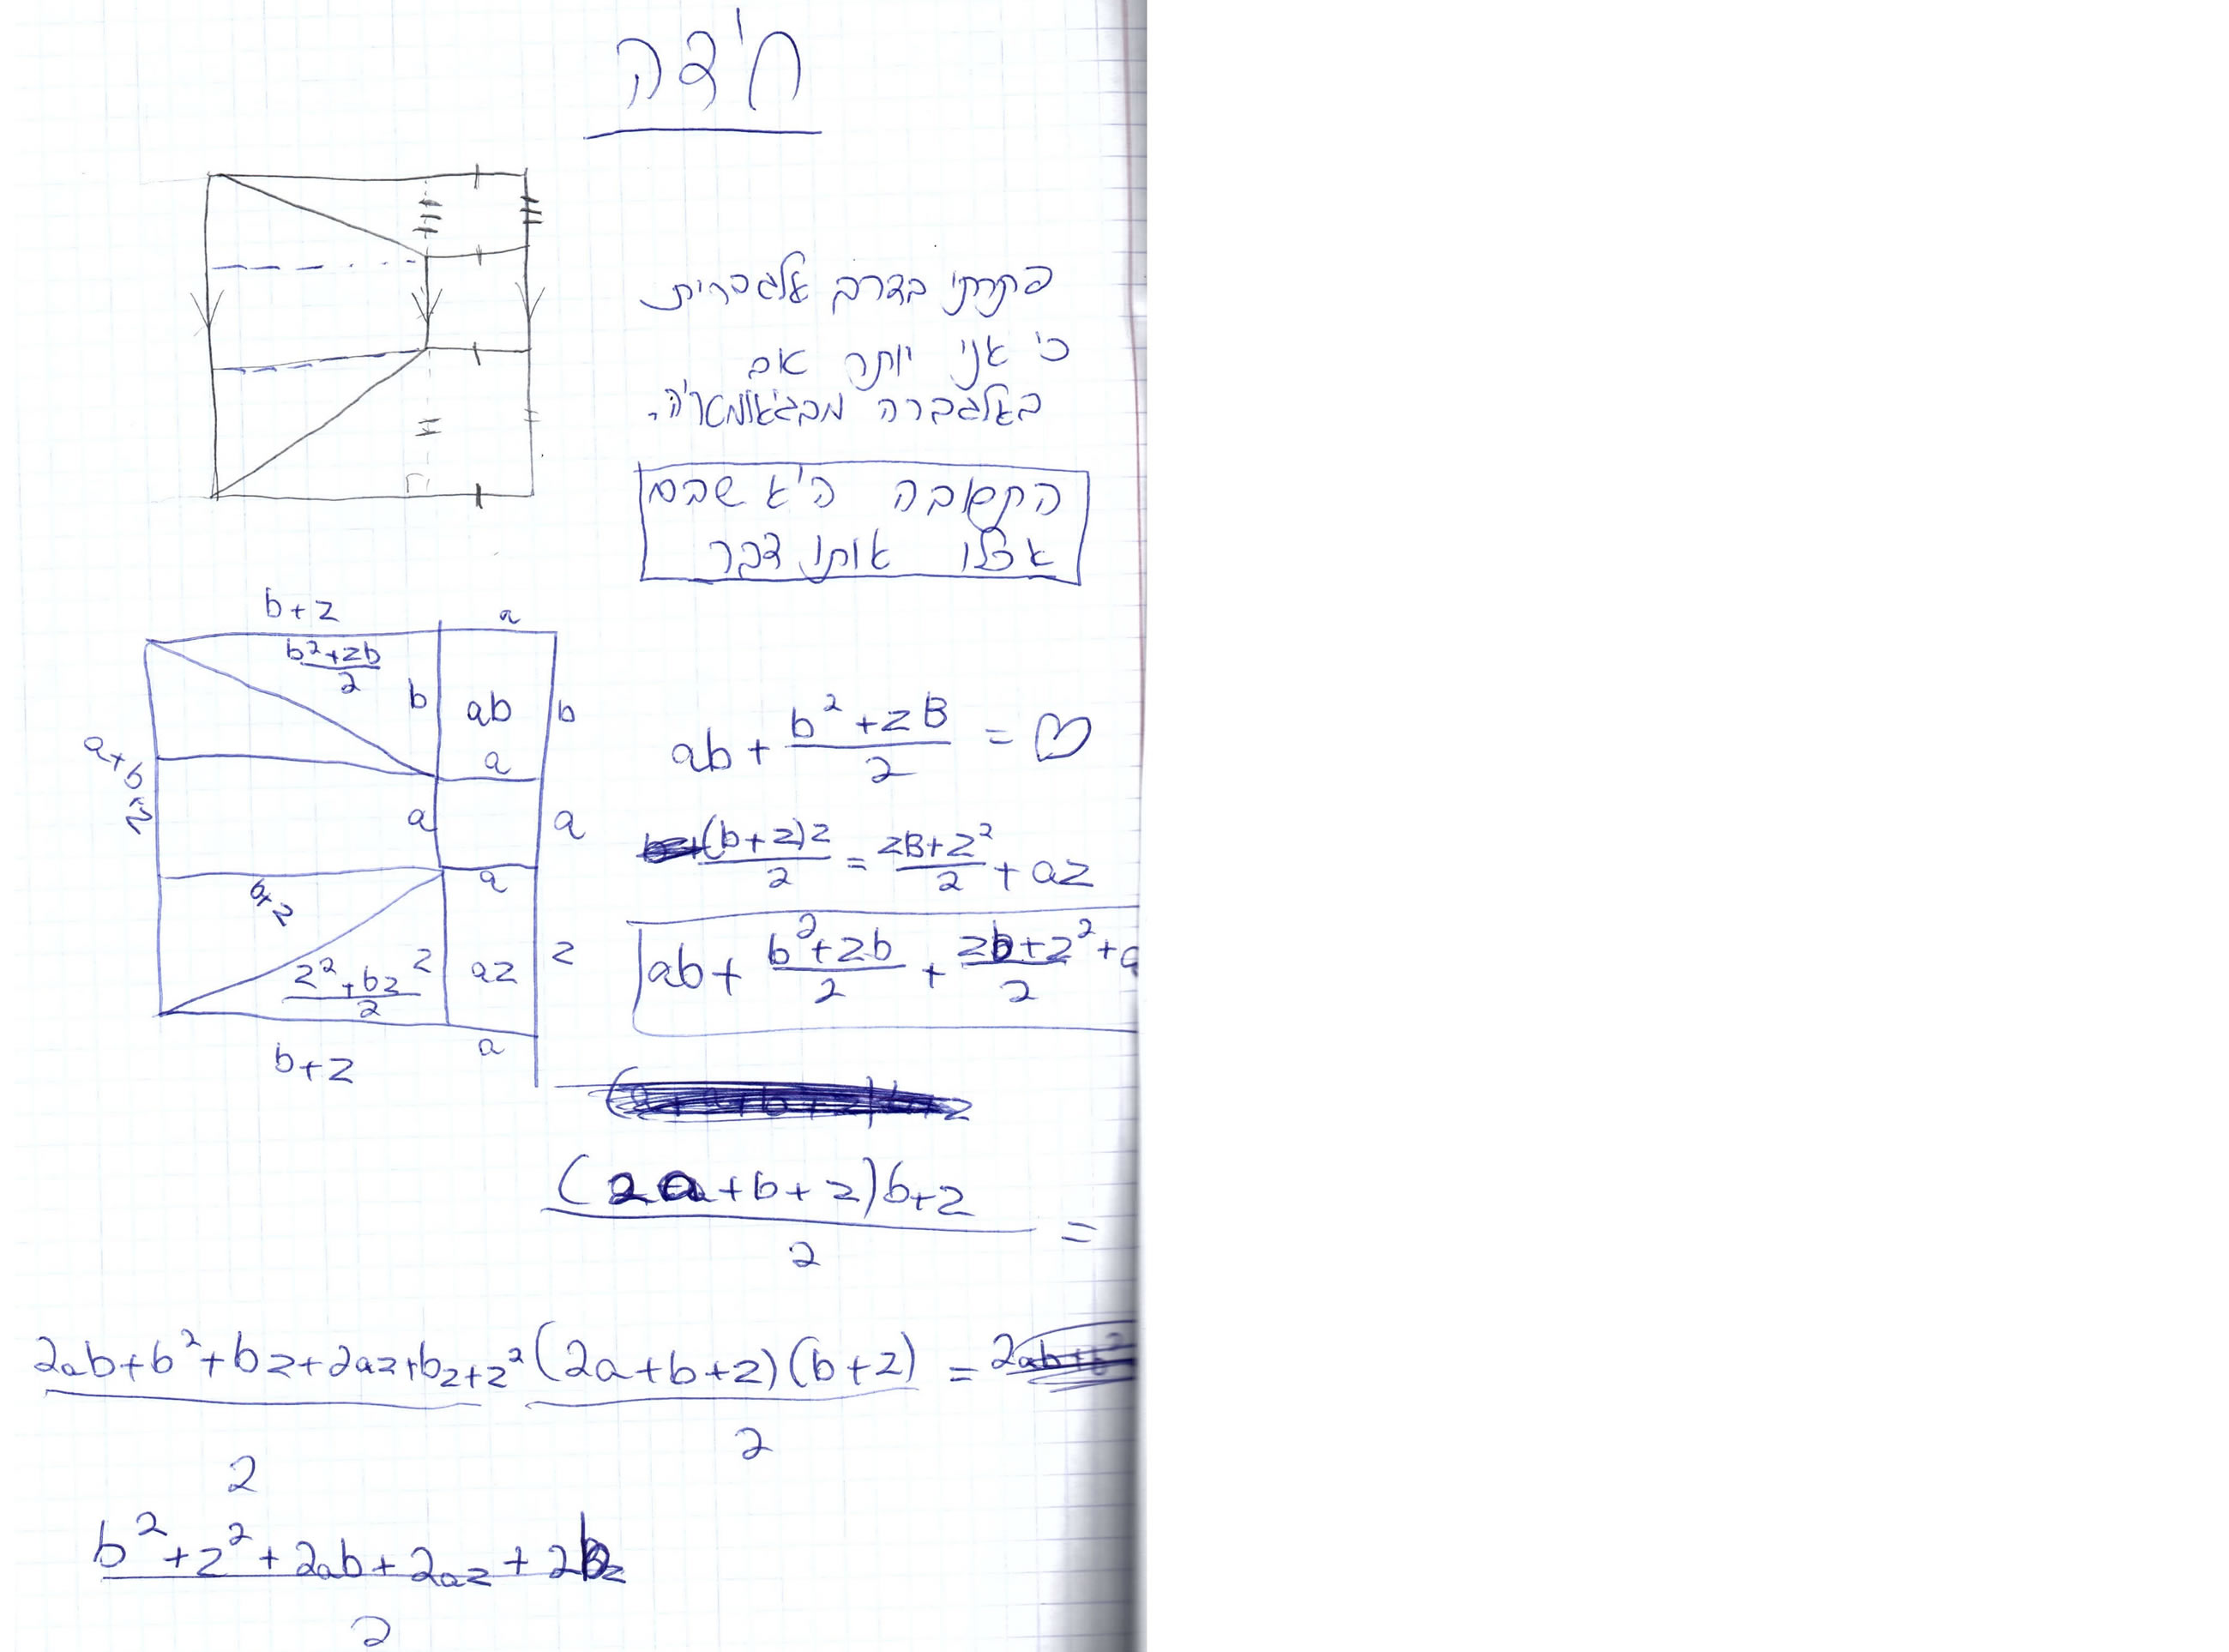 חידה
פתרתי בדרך אלגברית
כי אני יותר טוב
באלגברה מבגיאומטריה.
התשובה היא שבם
אצלו אותו דבר
b+z a
b²+zb
2
b ab b
a+b+z
a
a a
a
b+z
z²+bz
2
z az z
a
b+z
ab + b²+zB/2 = ♡
(b+z)z/2 = zB+z²/2 + az
ab + b²+zb/2 + zb+z²/2 +
(2a+b+z)b+z/2 =
2ab+b²+bz+2az+bz+z²/2 (2a+b+z)(b+z)/2 = 2
b²+z²+2ab+2az+2bz/2